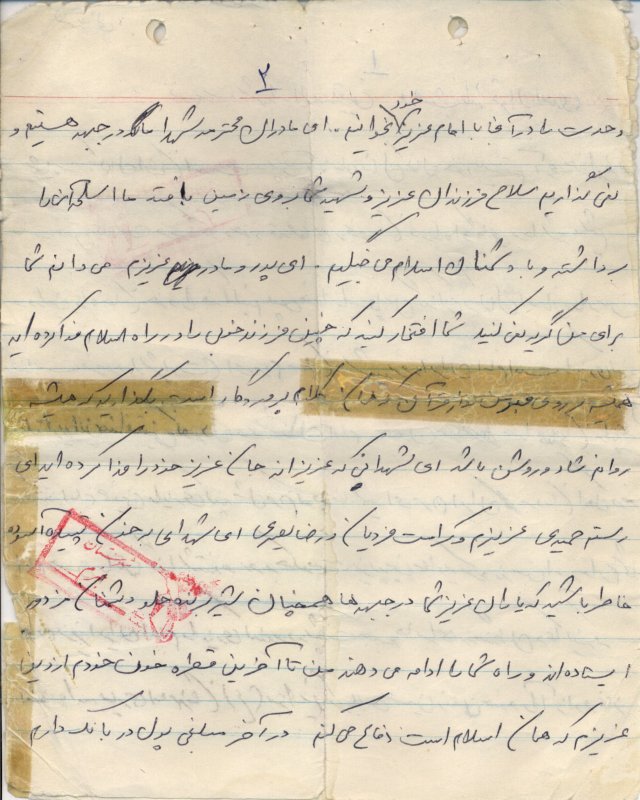 ۲
وحدت را در آقا با امام عزیز خود بخوانیم. ای مادران محترمه شهدا ما که در جبهه هستیم و
نمی گذاریم سلاح فرزندان عزیز و شهید شما بروی زمین بیافتد ما اسلحه آن را
برداشته و با دشمنان اسلام می جنگیم. ای پدر و مادر عزیزم می دانم شما
برای من گریه می کنید شما افتخار کنید که چنین فرزند خود را در راه اسلام فدا کرده اید
همیشه بر روی قبرمن کلام پروردگار است بگذارید که همیشه
روانم شاد و روشن باشد ای شهدائی که عزیزانه جان عزیز خود را فدا کرده اید ای
رستم حمیدی عزیزم و کرامت فردیان و رضا نصیری ای شهدای برحق آسوده
خاطر باشید که یاران عزیز شما در جبهه ها همچنان شیر جلو دشمنان مزدور
ایستاده اند و راه شما را ادامه می دهند من تا آخرین قطره خون خودم از دین
عزیزم که همان اسلام است دفاع می کنم در آخر مبلغی پول در بانک دارم